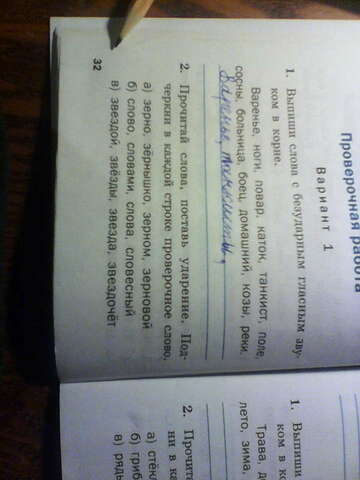 Проверочная работа
Вариант 1
1. Выпиши слова с безударным гласным зву-
ком в корне.
Варенье, ноги, повар, каток, танкист, поле,
сосны, больница, боец, домашний, козы, реки.
2. Прочитай слова, поставь ударение. Под-
черкни в каждой строке проверочное слово.
а) зерно, зёрнышко, зерном, зерновой
б) слово, словами, слова, словесный
в) звездой, звёзды, звезда, звездочёт
32
1. Выпиши
ком в
Трава,
лето, зима,
2. Прочит
ни в
а)
б)
в)